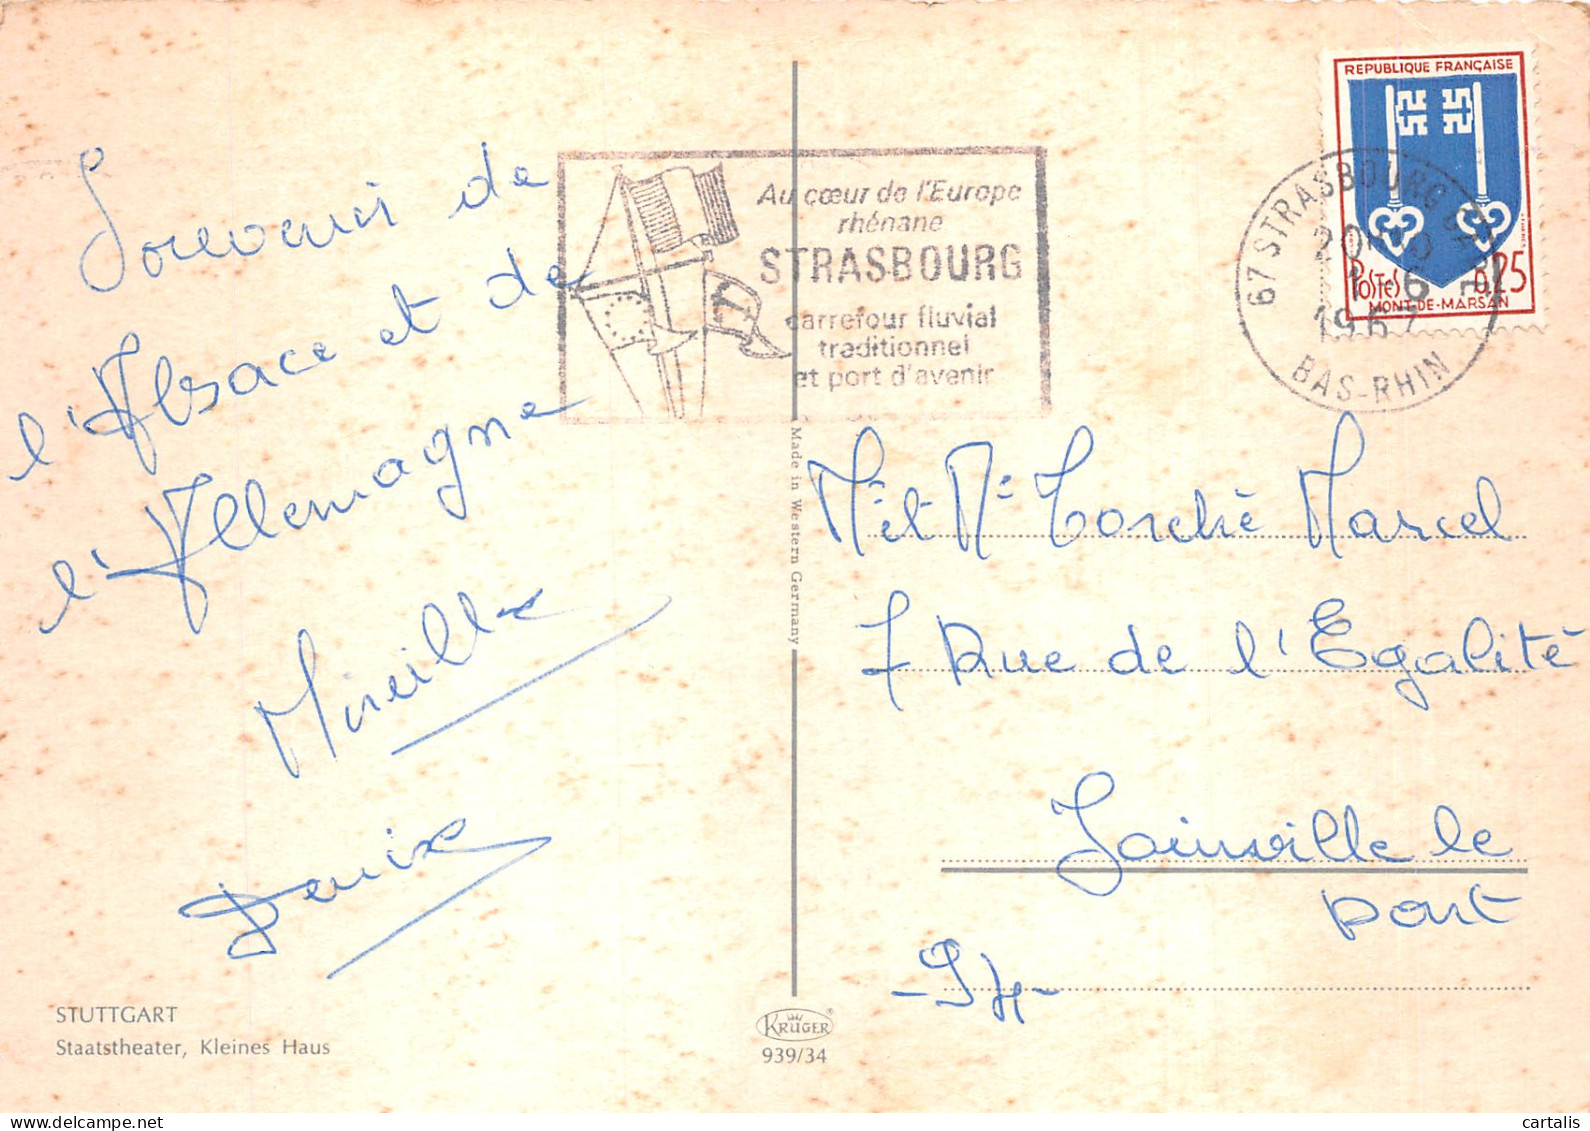 Souvenir de
l'Alsace et de
l'Allemagne
Mireille
Denise
STUTTGART
Staatstheater, Kleines Haus
Au cœur de l'Europe
rhénane
STRASBOURG
carrefour fluvial
traditionnel
et port d'avenir
Made in Western Germany
KRÜGER
939/34
REPUBLIQUE FRANÇAISE
POSTES 0,25
MONT-DE-MARSAN
67 STRASBOURG
1-6
1967
BAS-RHIN
Mr et Me Torchè Marcel
7 Rue de l'Egalité
Joinville le
pont
- 94 -
cartalis
delcampe.net